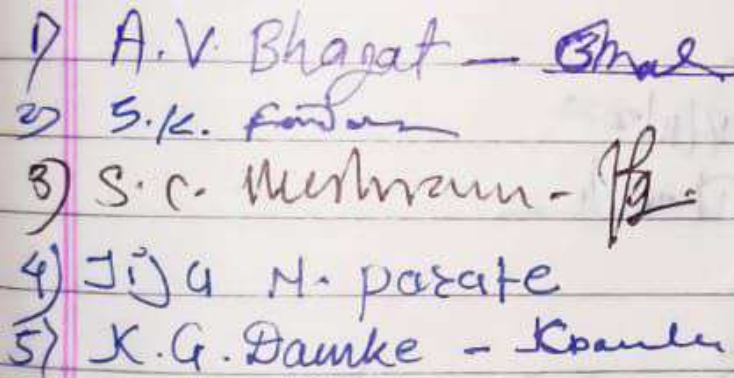 1) A.V. Bhagat -
2) S.K.
3) S.C. Meshram -
4) Jija N. parate
5) K.G. Damke -